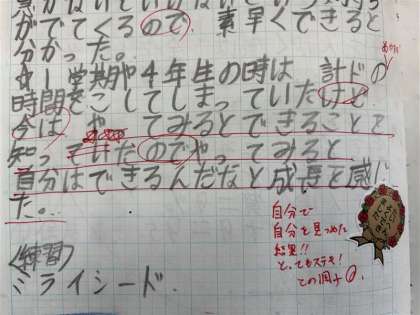 がでてくるので、素早くできると
分かった。
1学期や4年生の時は、計ドの
時間をこしてしまっていたけど
今は、やってみるとできることを
知っていたのでやってみると
自分はできるんだなと成長を感じ
た。
自分で
自分を見つめた
結果!!
とってもステキ!
この調子
〈練習〉
ミライシード